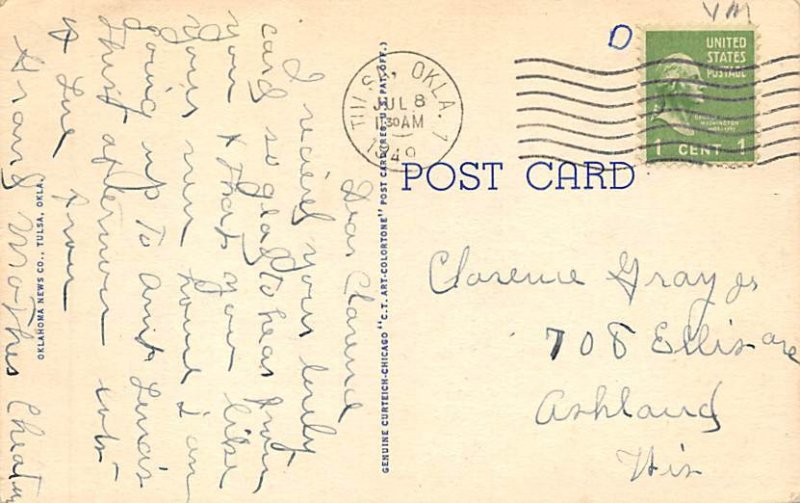 Dear Clarence
I recieved your lovely
card so glad to hear from
you & that you like
your new home I am
going up to Aunt Lena's
this afternoon
& Love from
Grand Mother Cheatum
OKLAHOMA NEWS CO., TULSA, OKLA.
GENUINE CURTEICH-CHICAGO "C.T. ART-COLORTONE" POST CARD (REG. U.S. PAT. OFF.)
TULSA, OKLA. 7
JUL 8
1 30 AM
1949
UNITED
STATES
POSTAGE
WASHINGTON
1 CENT 1
VM
D
POST CARD
Clarence Gray Jr
708 Ellis ave
Ashland
Wis